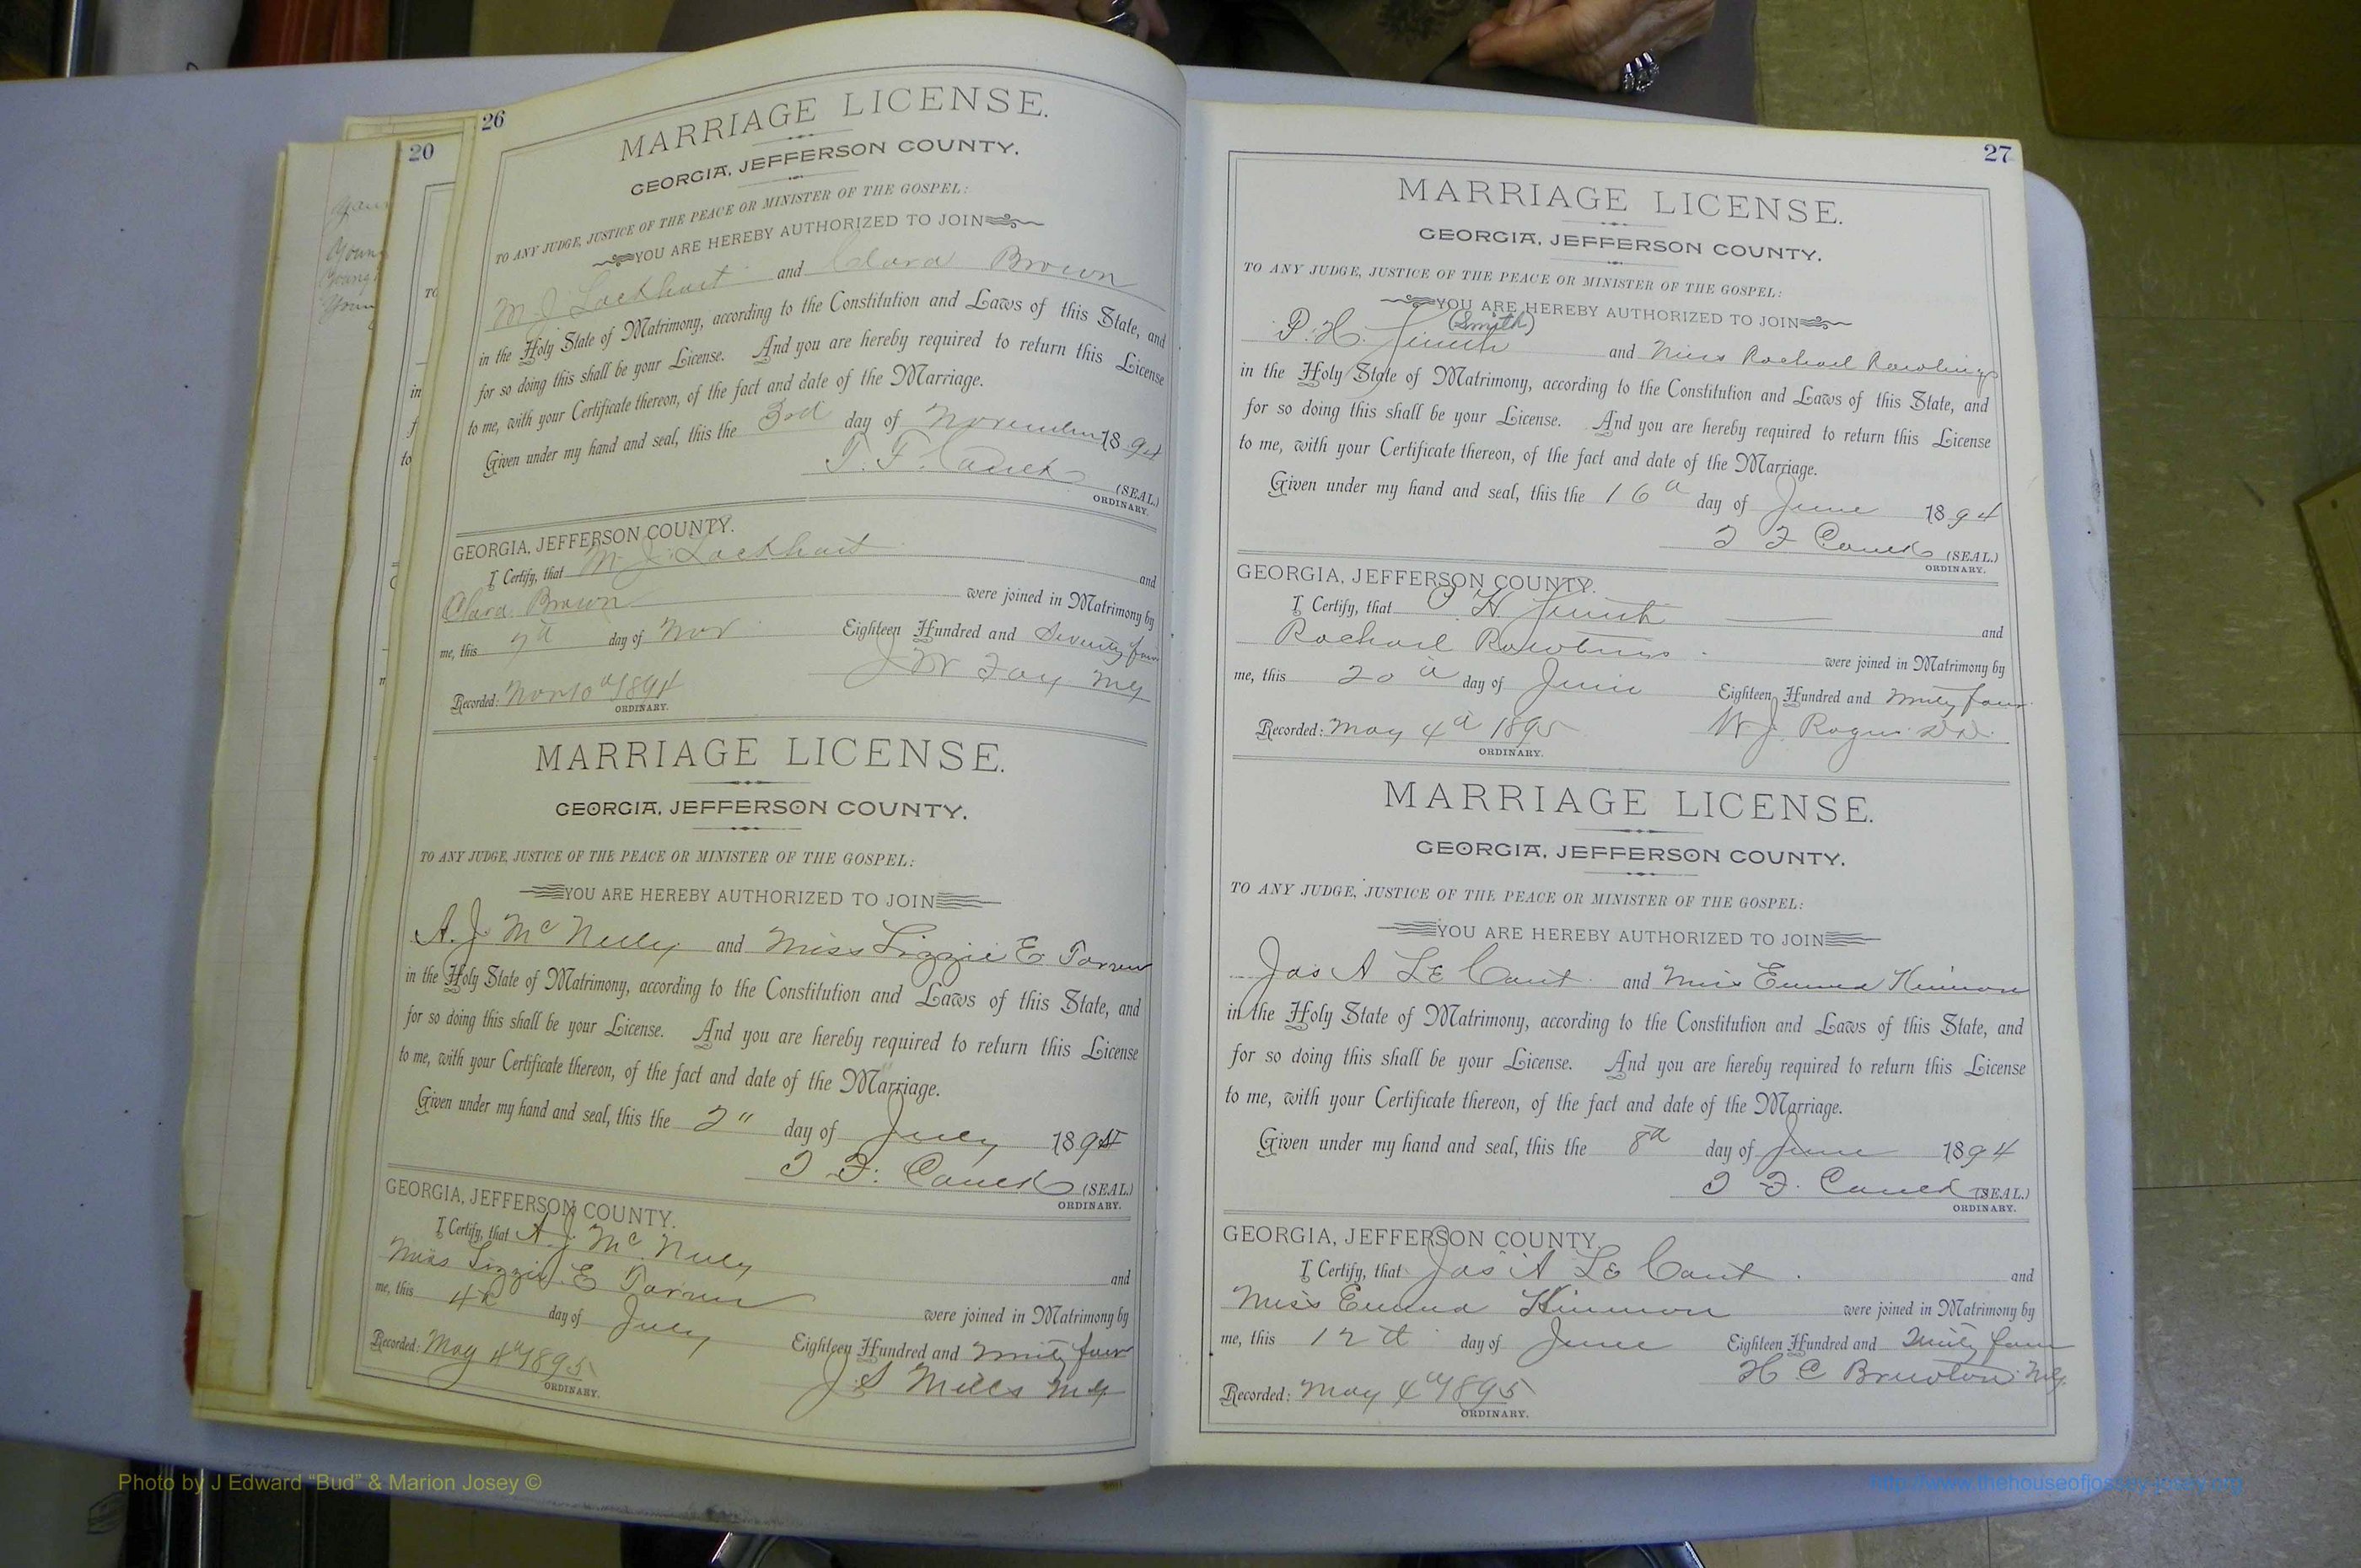 26
MARRIAGE LICENSE.
GEORGIA, JEFFERSON COUNTY.
TO ANY JUDGE, JUSTICE OF THE PEACE OR MINISTER OF THE GOSPEL:
YOU ARE HEREBY AUTHORIZED TO JOIN
M. J. Lockhart and Clara Brown
in the Holy State of Matrimony, according to the Constitution and Laws of this State, and
for so doing this shall be your License. And you are hereby required to return this License
to me, with your Certificate thereon, of the fact and date of the Marriage.
Given under my hand and seal, this the 3rd day of November 1894
(SEAL.)
ORDINARY.
GEORGIA, JEFFERSON COUNTY.
I Certify, that M. J. Lockhart and
Clara Brown were joined in Matrimony by
me, this day of Nov Eighteen Hundred and Seventy four
J W
Recorded: Nov 10th 1894
ORDINARY.
MARRIAGE LICENSE.
GEORGIA, JEFFERSON COUNTY.
TO ANY JUDGE, JUSTICE OF THE PEACE OR MINISTER OF THE GOSPEL:
YOU ARE HEREBY AUTHORIZED TO JOIN
A. J. McNeely and Miss Lizzie E
in the Holy State of Matrimony, according to the Constitution and Laws of this State, and
for so doing this shall be your License. And you are hereby required to return this License
to me, with your Certificate thereon, of the fact and date of the Marriage.
Given under my hand and seal, this the 2" day of July 1894
(SEAL.)
ORDINARY.
GEORGIA, JEFFERSON COUNTY.
I Certify, that A. J. McNeely and
Miss Lizzie E were joined in Matrimony by
me, this 4th day of July Eighteen Hundred and ninety four
J. S Mills MG
Recorded: May 4th 1895
ORDINARY.
20
27
MARRIAGE LICENSE.
GEORGIA, JEFFERSON COUNTY.
TO ANY JUDGE, JUSTICE OF THE PEACE OR MINISTER OF THE GOSPEL:
YOU ARE HEREBY AUTHORIZED TO JOIN
(Smith)
P. H. Smith and Miss Rachael Rawlings
in the Holy State of Matrimony, according to the Constitution and Laws of this State, and
for so doing this shall be your License. And you are hereby required to return this License
to me, with your Certificate thereon, of the fact and date of the Marriage.
Given under my hand and seal, this the 16th day of June 1894
(SEAL.)
ORDINARY.
GEORGIA, JEFFERSON COUNTY.
I Certify, that P H Smith and
Rachael Rawlings were joined in Matrimony by
me, this 20th day of June Eighteen Hundred and ninety four
W J. Rogers
Recorded: May 4th 1895
ORDINARY.
MARRIAGE LICENSE.
GEORGIA, JEFFERSON COUNTY.
TO ANY JUDGE, JUSTICE OF THE PEACE OR MINISTER OF THE GOSPEL:
YOU ARE HEREBY AUTHORIZED TO JOIN
Jas A Le Cont and Miss Emma
in the Holy State of Matrimony, according to the Constitution and Laws of this State, and
for so doing this shall be your License. And you are hereby required to return this License
to me, with your Certificate thereon, of the fact and date of the Marriage.
Given under my hand and seal, this the 8th day of June 1894
(SEAL.)
ORDINARY.
GEORGIA, JEFFERSON COUNTY.
I Certify, that Jas A Le Cont and
Miss Emma were joined in Matrimony by
me, this 12th day of June Eighteen Hundred and ninety four
H C Brewton MG.
Recorded: May 4th 1895
ORDINARY.
Photo by J Edward “Bud” & Marion Josey ©
http://www.thehouseofjossey-josey.org